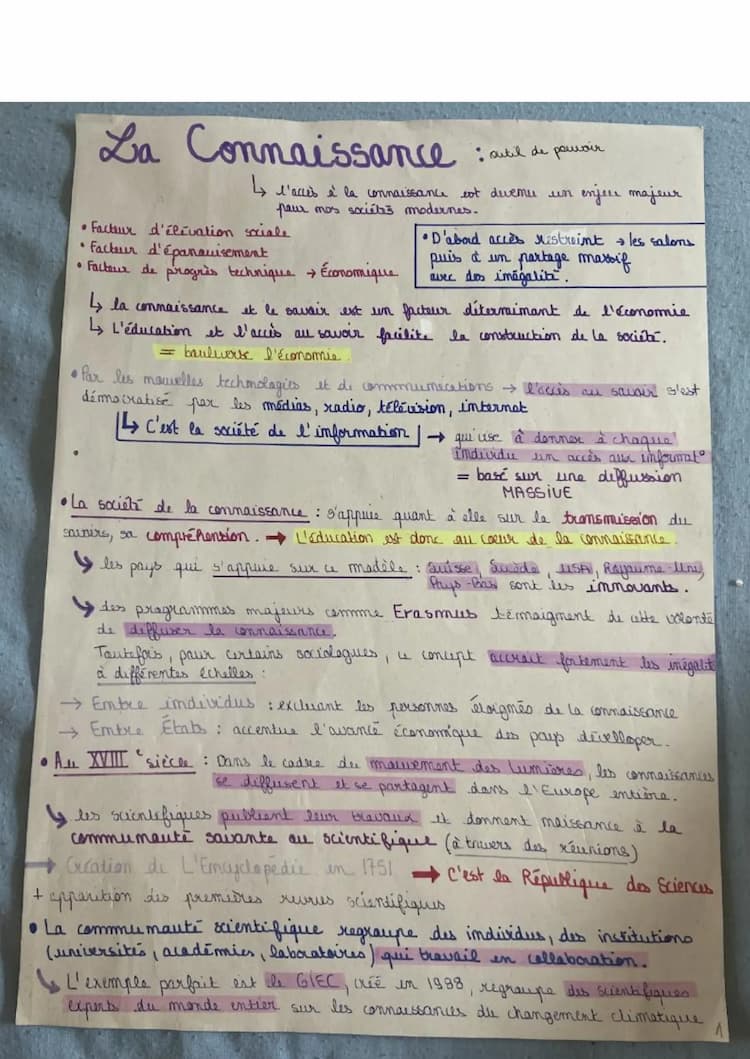 La Connaissance : outil de pouvoir
↳ l'accès à la connaissance est devenu un enjeu majeur
pour nos sociétés modernes.
• Facteur d'élévation sociale
• Facteur d'épanouisement
• Facteur de progrès technique → Économique
• D'abord accès restreint → les salons
puis à un partage massif
avec des inégalité.
↳ la connaissance et le savoir est un facteur déterminant de l'économie
↳ L'éducation et l'accès au savoir facilite la construction de la société.
= bouleverse l'économie
• Par les nouvelles technologies et de communications → l'accès au savoir s'est
démocratisé par les médias, radio, télévision, internet
↳ C'est la société de l'information → qui vise à donner à chaque
individu un accès aux informat°
= basé sur une diffussion
MASSIVE
• La société de la connaissance : s'appuie quant à elle sur la transmission du
savoirs, sa compréhension. → L'éducation est donc au cœur de la connaissance.
↳ les pays qui s'appuie sur ce modèle : Suisse, Suède, USA, Royaume-Uni,
Pays-Bas sont les innovants.
↳ des programmes majeurs comme Erasmus témoignent de cette volonté
de diffuser la connaissance.
Toutefois, pour certains sociologues, ce concept accroit fortement les inégalit
à différentes échelles :
→ Entre individus : excluant les personnes éloignés de la connaissance
→ Entre États : accentue l'avancé économique des pays développer.
• Au XVIIIe siècle : Dans le cadre du mouvement des Lumières, les connaissances
se diffusent et se partagent dans l'Europe entière.
↳ les scientifiques publient leur travaux et donnent naissance à la
communauté savante ou scientifique (à travers des réunions)
→ Création de L'Encyclopédie en 1751 → C'est la République des Sciences
+ apparition des premières revues scientifiques
• La communauté scientifique regroupe des individus, des institutions
(universités, académies, laboratoires) qui travail en collaboration.
↳ L'exemple parfait est le GIEC, créé en 1988, regroupe des scientifiques
experts du monde entier sur les connaissances du changement climatique
1